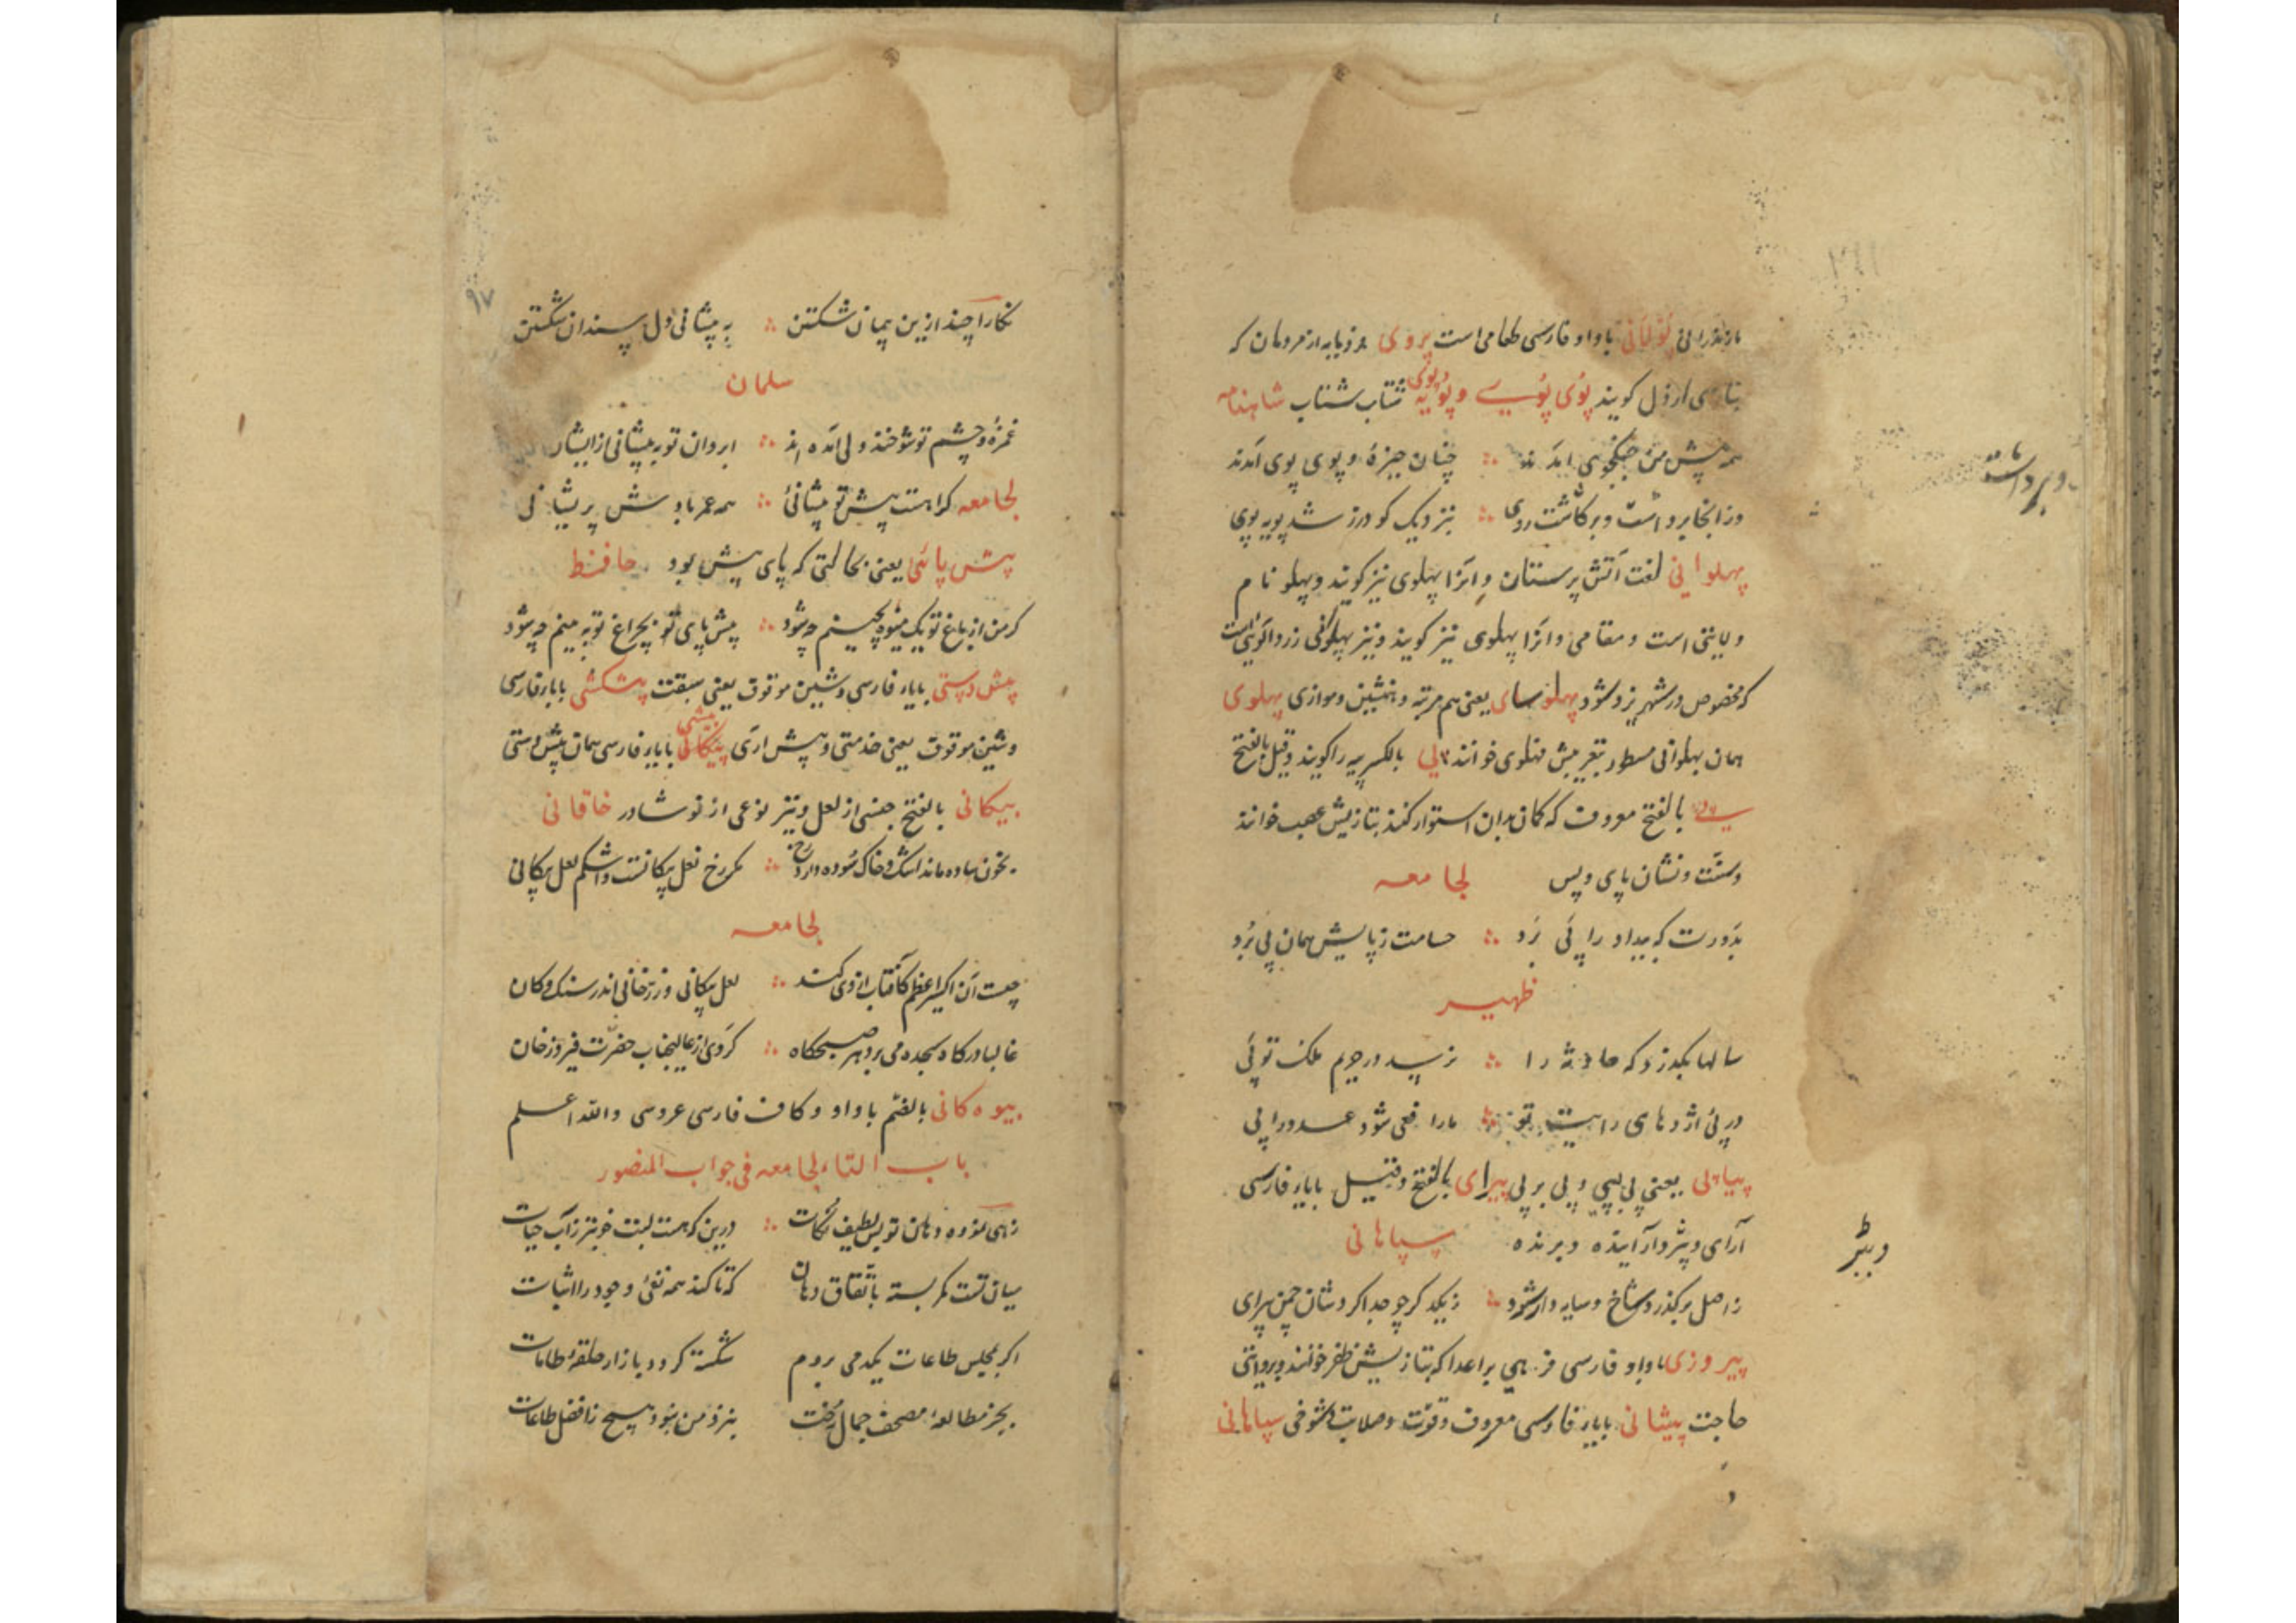 مازندرانی پولانی باواو فارسی طعامی است پروی فرومایه از مردمان که
بتازی ارذل کویند پوی پویے و پویه و پوی شتاب شتاب شاهنامه
همه پیش من جنکجوی امدند ∴ چنان خیزه و پوی پوی امدند
وزانجا برداشت و برکاشت روی ∴ بنزدیک کودرز شد پویه پوی
پهلوانی لغت آتش پرستان و آنرا پهلوی نیز کویند و پهلو نام
ولایتی است و مقامی و آنرا پهلوی نیز کویند و نیز پهلوی زرد الوئی است
که مخصوص در شهر یزد شود پهلوسای یعنی هم مرتبه و همنشین و موازی پهلوی
همان پهلوانی مسطور بتعریبش فهلوی خوانند پی بالکسر پیه را کویند و قیل بالفتح
پے بالفتح معروف که کمان بدان استوار کنند بتازیش عصب خوانند
و سنت و نشان پای و پس لجامعه
بدورت که بیداد را پی برد ∴ حسامت زپایش همان پی برد
ظهیر
سالها بکذرد که حادثه را ∴ نرسد در حریم ملک تو پی
در پی اژدهای رایت تو ∴ مار افعی شود عدو را پی
پیاپی یعنی پی بپی و پی بر پی پیرای بالفتح و قیل بایاء فارسی
آرای و پیرو آراینده و برنده سپاهانی
زاصل برکذرد شاخ و سایه دار شود ∴ زیکدکر چو جدا کردشان چمن پیرای
پیروزی باواو فارسی فرهی بر اعدا که بتازیش ظفر خوانند و بروایتی
حاجت پیشانی بایاء فارسی معروف و قوت و صلابت و شوخی سپاهانی
و برداشت
و ببر
٩٧
نکارا چند ازین پیمان شکستن ∴ به پیشانی دل سندان شکستن
سلمان
غمزه و چشم تو شوخند ولی آمده اند ∴ ابروان تو به پیشانی از ایشان
لجامعه کراهست پیش تو پیشانی ∴ همه عمر بادش پریشانی
پیش پائی یعنی بحالتی که پای پیش بود حافظ
کر من از باغ تو یک میوه بچینم چه شود ∴ پیش پای تو بچراغ تو به بینم چه شود
پیش دستی بایاء فارسی و شین موقوف یعنی سبقت پیشکشی بایاء فارسی
و شین موقوف یعنی خدمتی و پیش ارئ پیشکانی بایاء فارسی همان پیش دستی
پیکانی بالفتح جنسی از لعل و نیز نوعی از نوشادر خاقانی
بخون ساده ماند اشک و خاک سوده دارد رخ ∴ مکر رخ نعل پیکانست و اشکم لعل پیکانی
لجامعه
چیست آن اکسیر اعظم کافتاب ازوی کند ∴ لعل پیکانی و زرخانی اندر سنک و کان
غالبا در کاه سجده می برد هر صبحکاه ∴ کردی از عالیجناب حضرت فیروز خان
بیوه کانی بالضم باواو و کاف فارسی عروسی والله اعلم
باب التاء لجامعه فی جواب المنصور
زهی نموده دهان تو بس لطیف نکات ∴ درین که هست لبت خوبتر زآب حیات
میان تست کمر بسته باتفاق دهان که تا کند همه نفی وجود را اثبات
اکر بمجلس طاعات یکدمی بروم شکسته کردد بازار حلقه طامات
بجز مطالعه مصحف جمال رخت بنزد من نبود هیچ زافضل طاعات